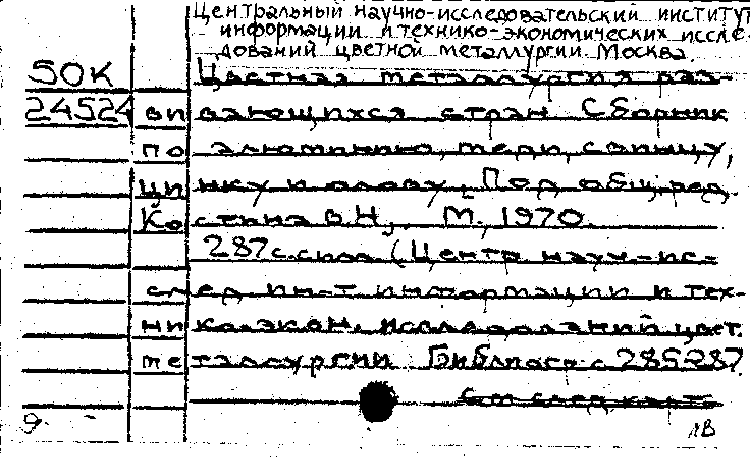 Центральный научно-исследовательский институт
информации и технико-экономических иссле-
дований цветной металлургии. Москва.
50К Цветная металлургия раз-
24524 вивающихся стран Сборник
по алюминию, меди, свинцу,
цинку и олову. Под общ. ред.
Костина В.Н., М., 1970.
287 с. (Центр науч-ис-
след ин-т информации и тех-
нико-экон. исследований цвет.
металлургии Библиогр. с 285-287
См след карт
9. ЛВ